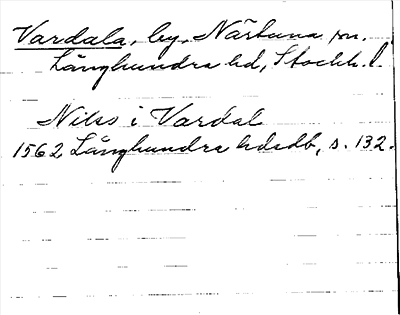 Vardala, by, Närtuna sn.
Långhundra hd, Stockh. l.
Nils i Vardal
1562 Långhundra hdsdb, s. 132.